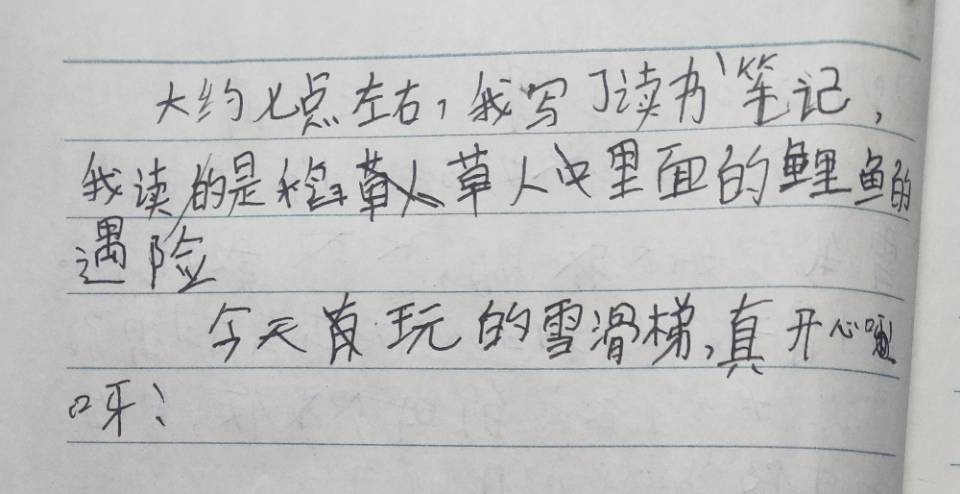 大约七点左右，我写了读书笔记，
我读的是稻草人中里面的鲤鱼的
遇险
今天玩的雪滑梯，真开心
呀！